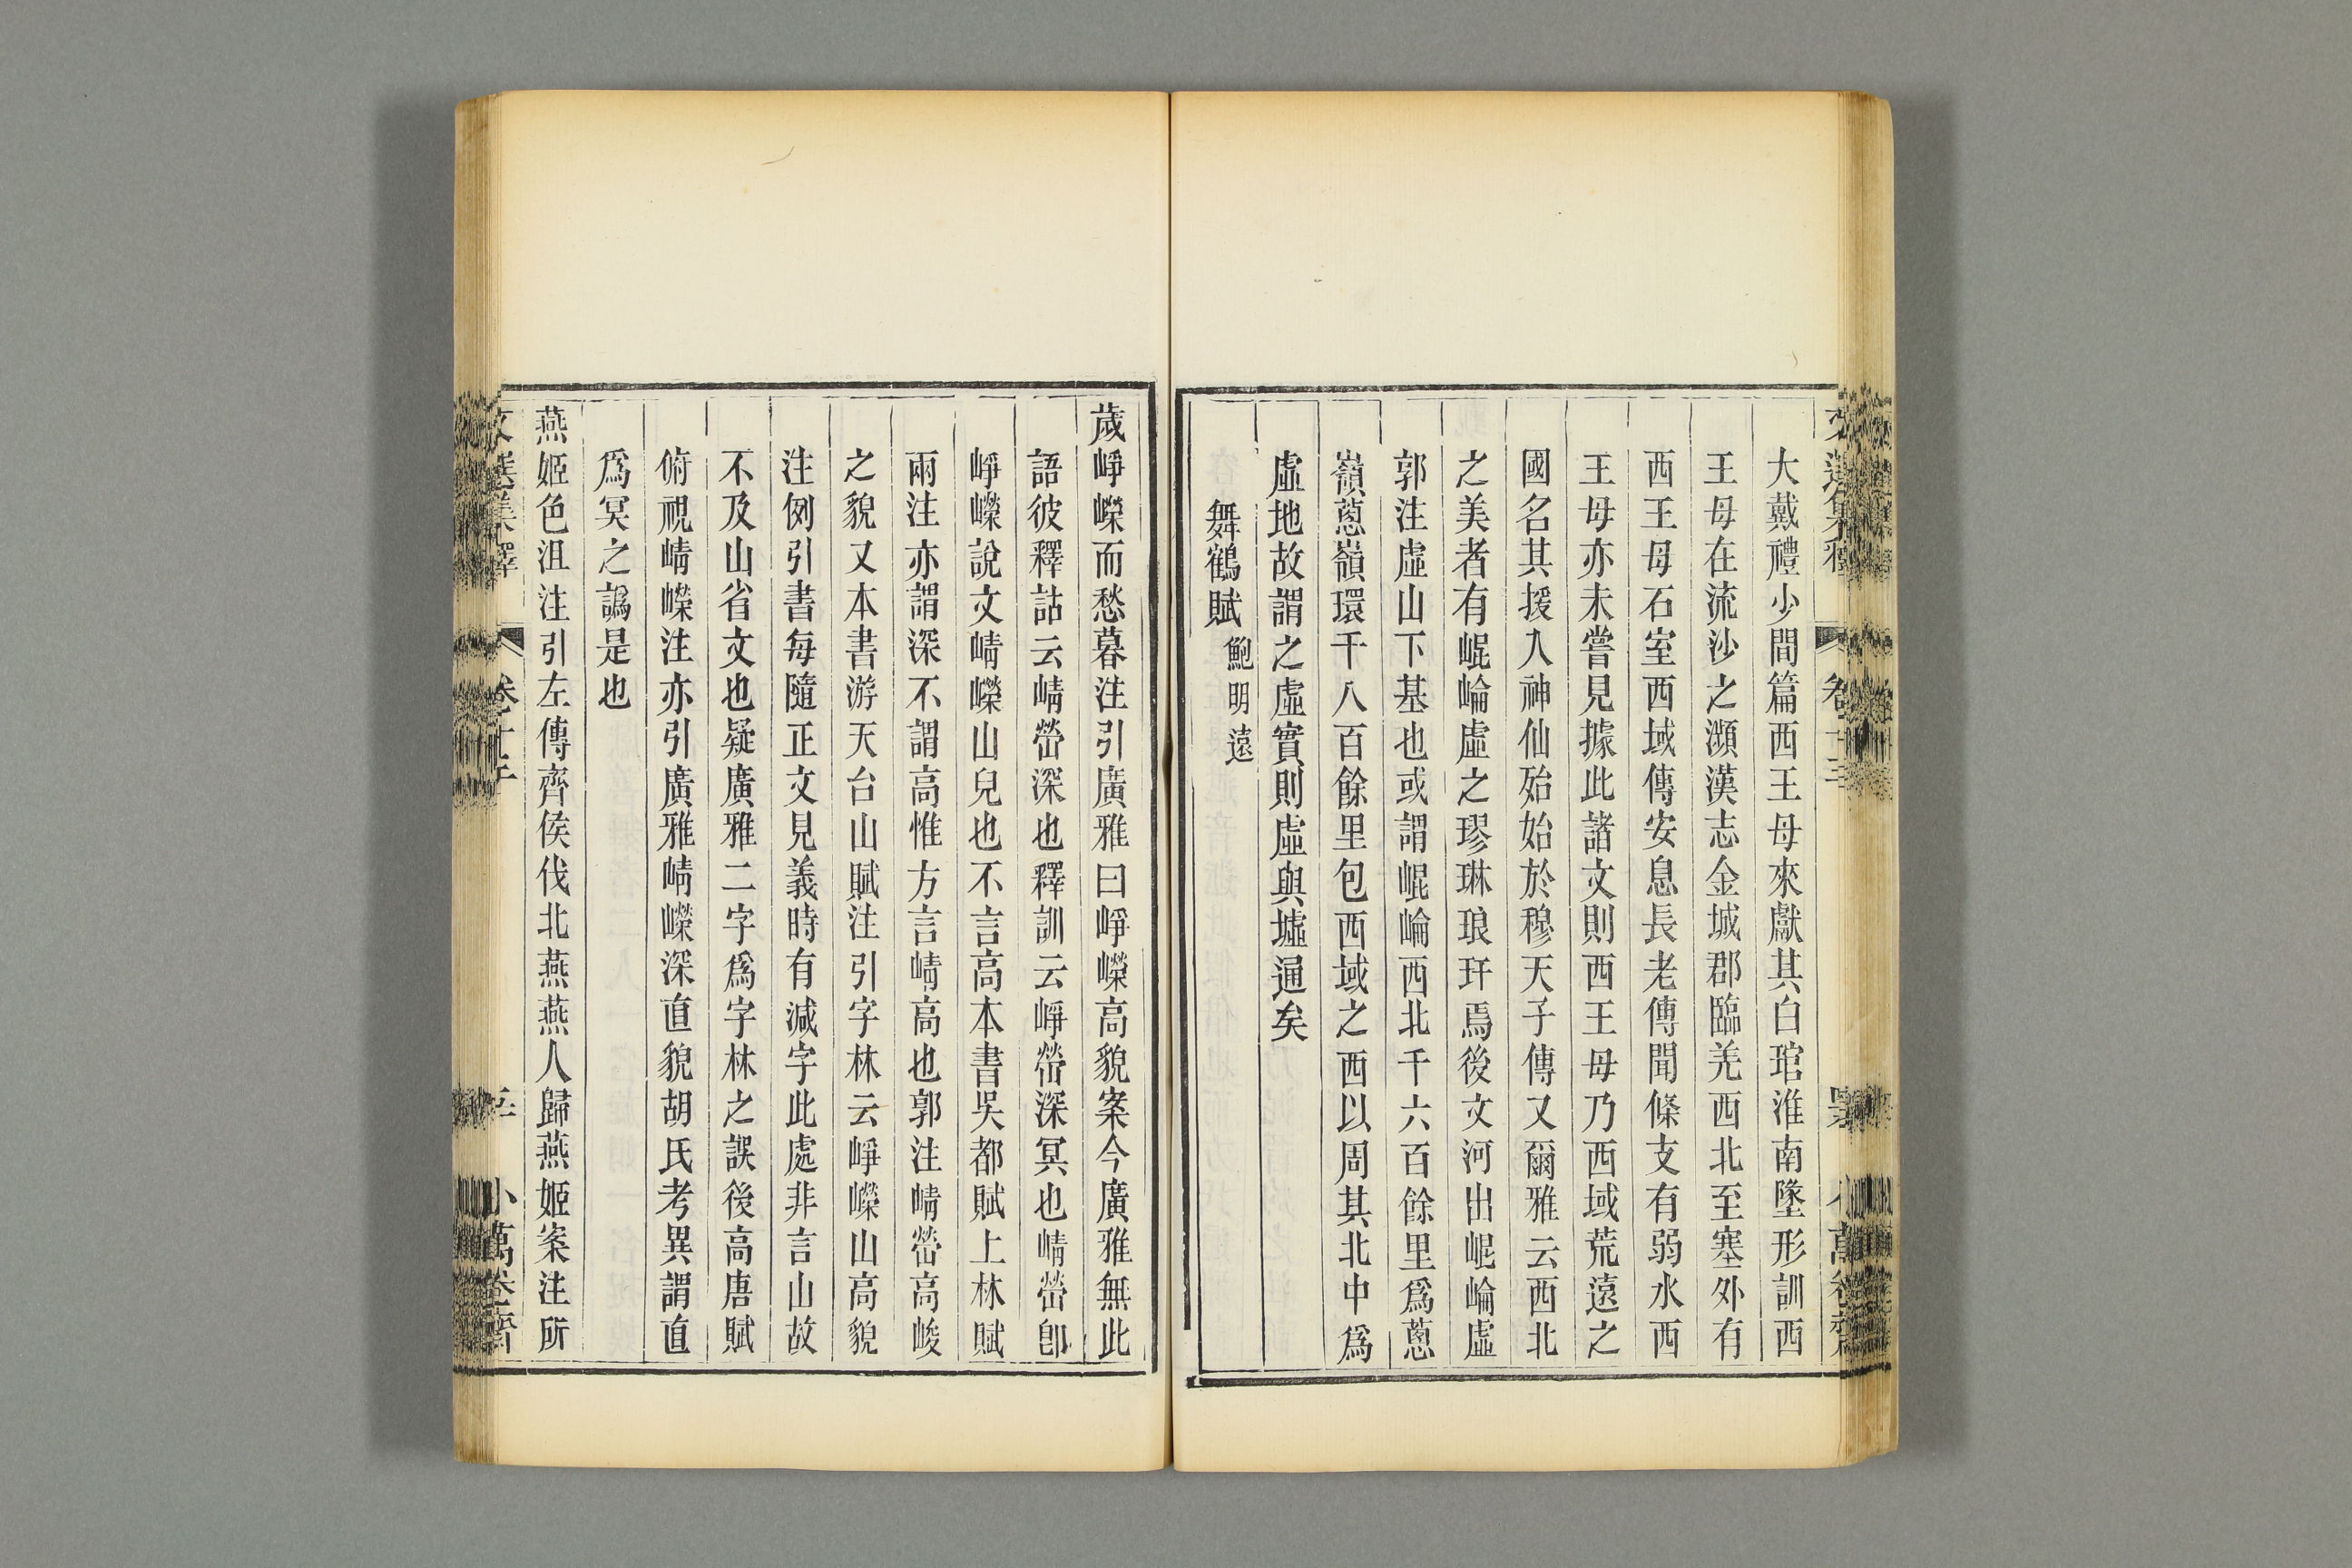 大戴禮少間篇西王母來獻其白琯淮南墜形訓西
王母在流沙之瀕漢志金城郡臨羌西北至塞外有
西王母石室西域傳安息長老傳聞條支有弱水西
王母亦未嘗見據此諸文則西王母乃西域荒遠之
國名其援入神仙殆始於穆天子傳又爾雅云西北
之美者有崐崘虛之璆琳琅玕焉後文河出崐崘虛
郭注虛山下基也或謂崐崘西北千六百餘里爲蔥
嶺蔥嶺環千八百餘里包西域之西以周其北中爲
虛地故謂之虛實則虛與墟通矣
舞鶴賦 鮑明遠
歲崢嶸而愁暮注引廣雅曰崢嶸高貌案今廣雅無此
語彼釋詁云崝嶜深也釋訓云崢嶜深冥也崝嶜卽
崢嶸說文崝嶸山皃也不言高本書吳都賦上林賦
兩注亦謂深不謂高惟方言崝高也郭注崝嶜高峻
之貌又本書游天台山賦注引字林云崢嶸山高貌
注例引書每隨正文見義時有減字此處非言山故
不及山省文也疑廣雅二字爲字林之誤後高唐賦
俯視崝嶸注亦引廣雅崝嶸深直貌胡氏考異謂直
爲冥之譌是也
燕姬色沮注引左傳齊侯伐北燕燕人歸燕姬案注所